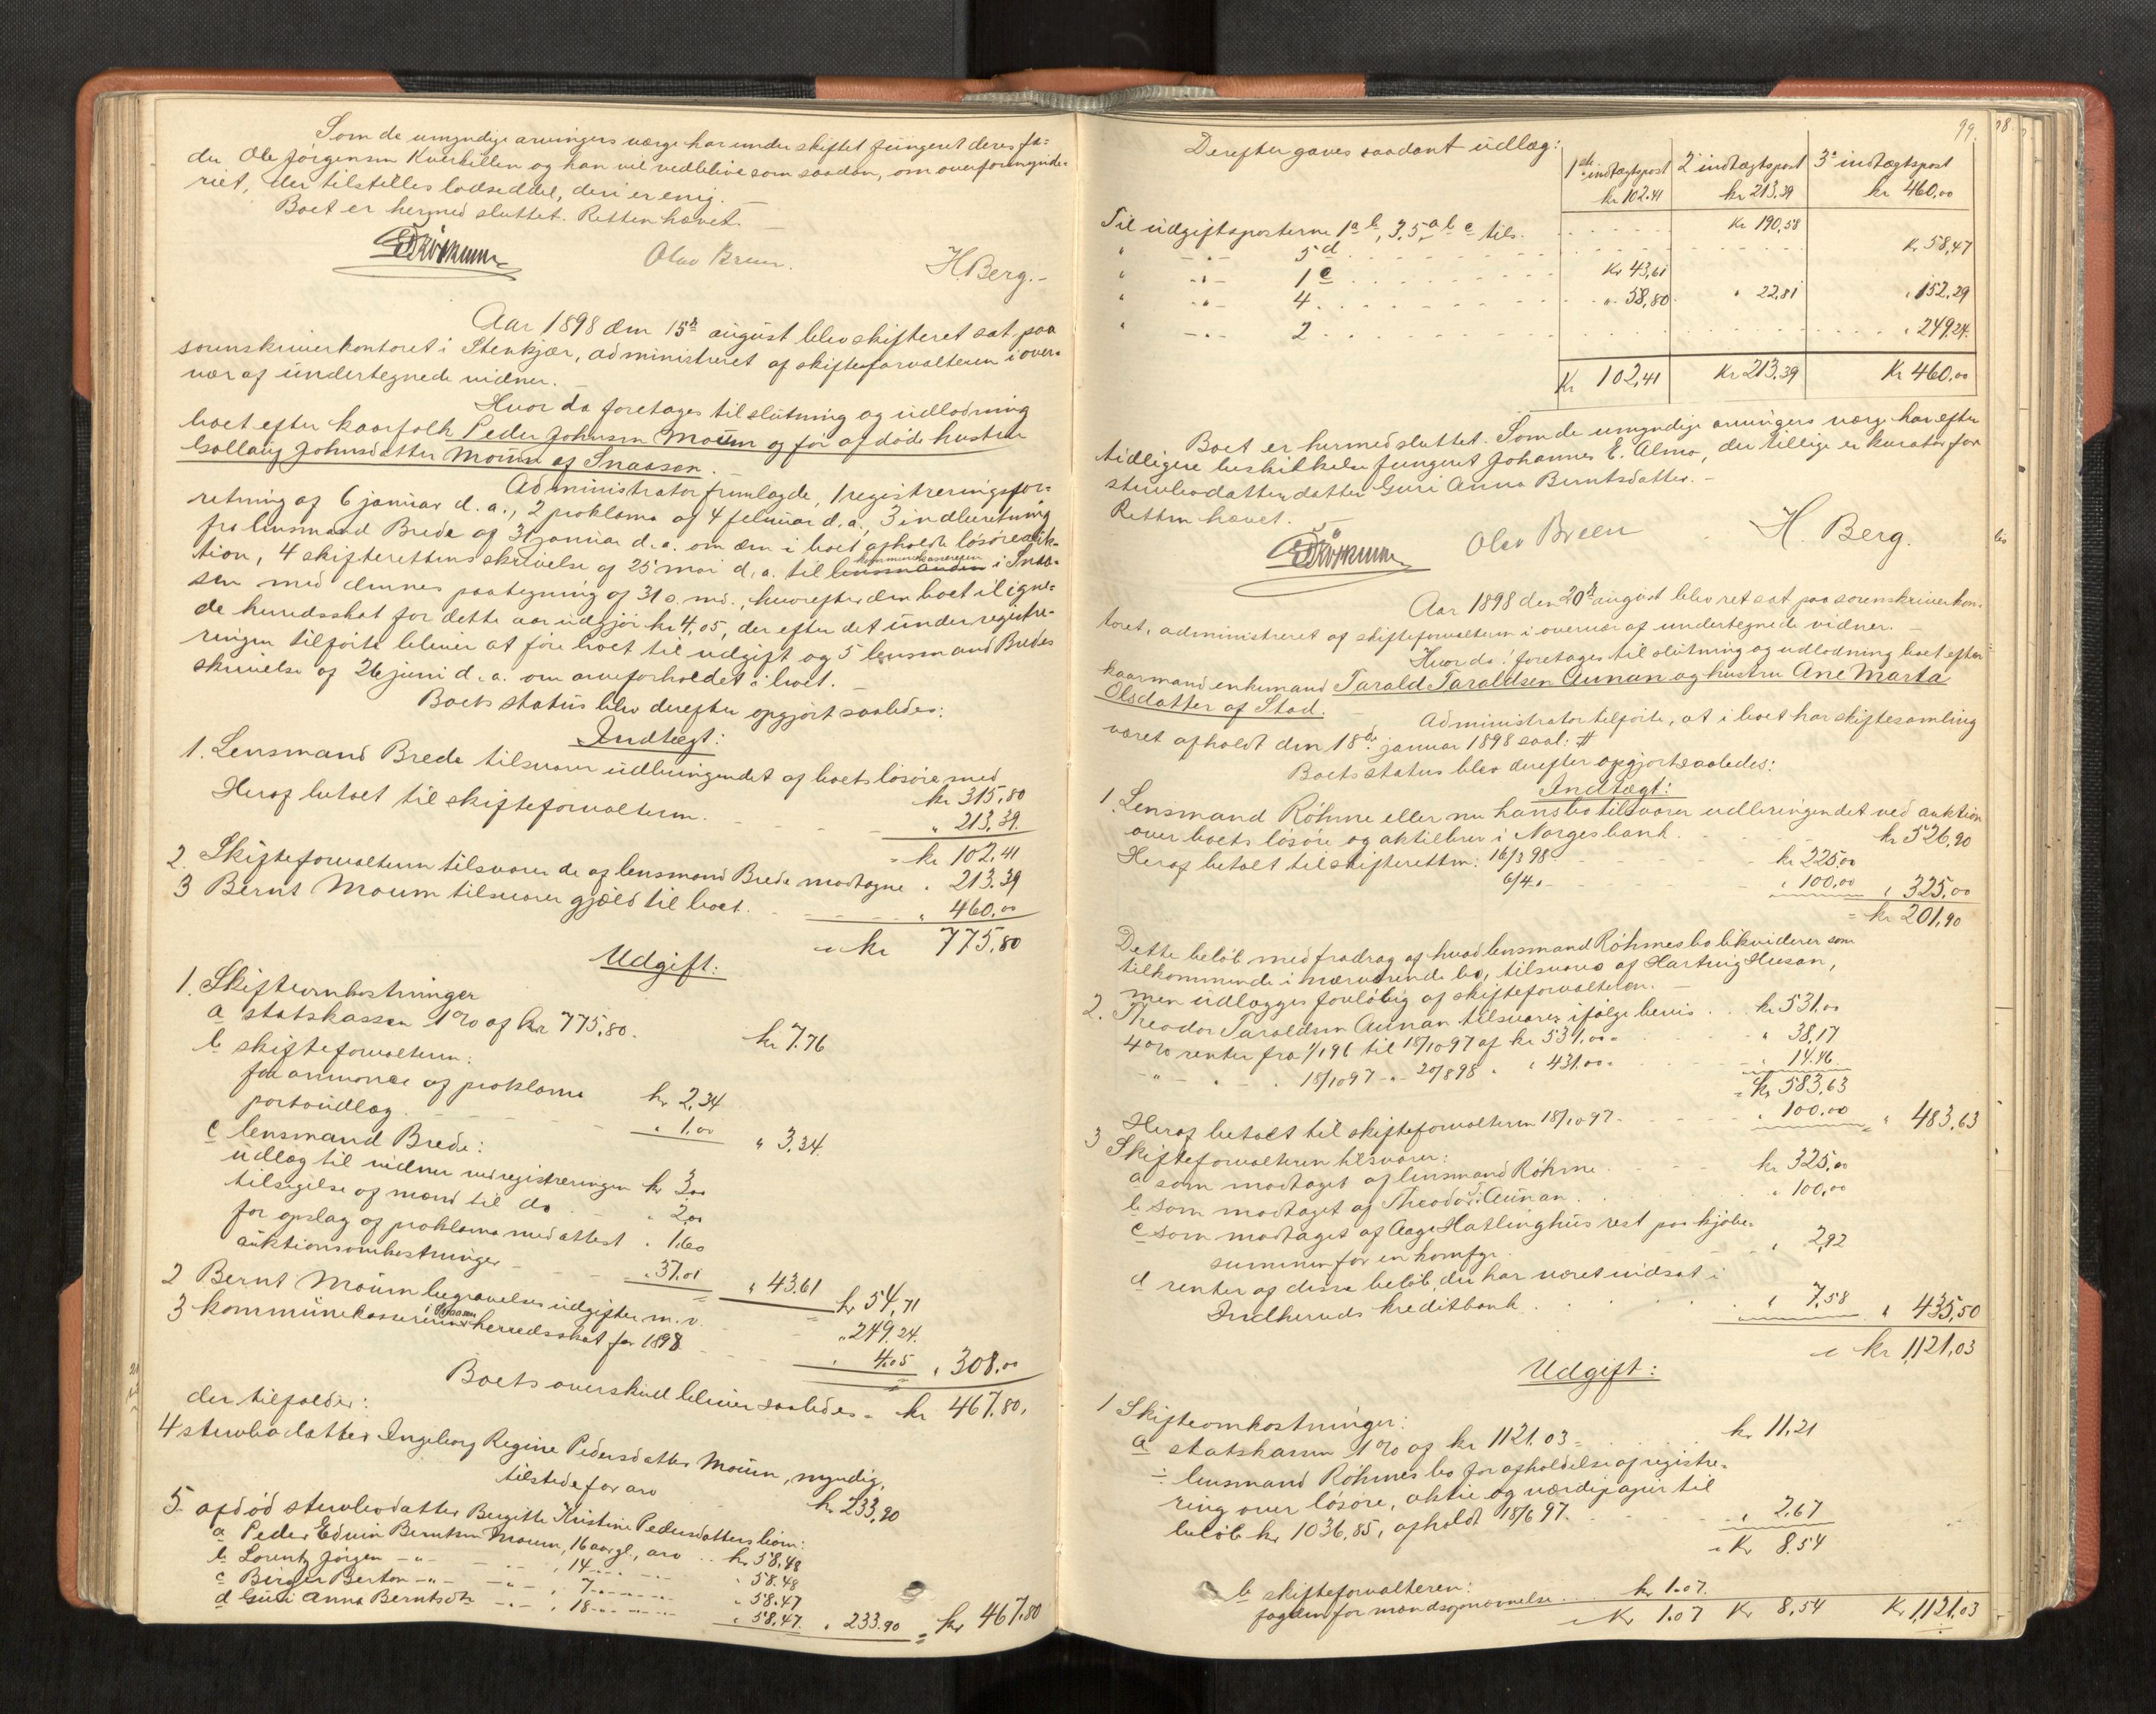 Som de umyndige arvingers værge har under skiftet fungeret deres fa-
der Ole Jørgensen Kverkillen og han vil vedblive som saadan, om overformynde-
riet, der tilstilles lodseddel, deri er enig. —
Boet er hermed sluttet. Retten hævet. —
Olav Breen. H. Berg. —
Aar 1898 den 15de august blev skifteret sat paa
sorenskriverkontoret i Stenkjær, administreret af skifteforvalteren i over-
vær af undertegnede vidner. —
Hvor da foretages til slutning og udlodning
boet efter kaarfolk Peder Johnsen Moum og før afdøde hustru
Gollaug Johnsdatter Moum af Snaasen. —
Administrator fremlagde, 1 registreringsfor-
retning af 6 januar d. a., 2 proklama af 4 februar d. a., 3 indberetning
fra lensmand Brede af 31 januar d. a. om den i boet afholdt løsøreauk-
tion, 4 skifterettens skrivelse af 25 mai d. a. til kommunekassereren i Snaa-
sen med dennes paategning af 31 s. md., hvorefter den boet iligne-
de herredsskat for dette aar udgjør kr 4,05, der efter det under registre-
ringen tilførte bliver at føre boet til udgift og 5 lensmand Bredes
skrivelse af 26 juni d. a. om arveforholdet i boet. —
Boets status blev derefter opgjort saaledes:
Indtægt:
1. Lensmand Brede tilsvarer udbringendet af boets løsøre med
kr 315,80
Heraf betalt til skifteforvalteren. " 213,39.
= kr 102,41
2. Skifteforvalteren tilsvarer de af lensmand Brede modtagne " 213.39
3 Bernt Moum tilsvarer gjæld til boet. " 460,00
= kr 775,80
Udgift:
1. Skifteomkostninger
a statskassen 1% af kr 775,80. kr 7.76
b skifteforvalteren:
for annonce af proklama kr 2,34
portoudlæg " 1,00 " 3,34
c lensmand Brede:
udlæg til vidner ved registreringen kr 3,00
tilsigelse af mænd til do " 2,00
for opslag af proklama med attest " 1,60
auktionsomkostninger " 37.01 " 43.61 kr 54,71
2 Bernt Moum begravelsesudgifter m. v. " 249.24.
3 kommunekassereren i Snaasen herredsskat for 1898 " 4.05 " 308,00
Boets overskud bliver saaledes = kr 467.80,
der tilfalder:
4 stervbodatter Ingeborg Regine Pedersdatter Moum, myndig,
tilstede for arv kr 233,90
5 afdød stervbodatter Birgitte Kristine Pedersdatters børn:
a Peder Edvin Berntsen Moum, 16 aar gl., arv kr 58.48
b Lorentz Jørgen —"— —"—, 14 —"— " 58.48
c Birger Berton —"— —"—, 7 —"— " 58.47
d Guri Anna Berntsdtr —"—, 18 —"— " 58.47. " 233.90 = kr 467.80
99.
Derefter gaves saadant udlæg:
1ste indtægtspost 2 indtægtspost 3e indtægtspost
kr 102.41 kr 213.39 kr 460,00
Til udgiftsposterne 1 a b, 3, 5 a b c tils. Kr 190,58
" —"— 5 d Kr 58,47
" —"— 1 c Kr 43,61
" —"— 4 " 58,80 " 22,81 " 152,29
" —"— 2 " 249.24.
Kr 102,41 Kr 213.39 Kr 460,00
Boet er hermed sluttet. Som de umyndige arvingers værge har efter
tidligere beskikkelse fungeret Johannes E. Almo, der tillige er kurator for
stervbodatters datter Guri Anna Berntsdatter. —
Retten hævet.
Olav Breen H. Berg.
Aar 1898 den 20de august blev ret sat paa sorenskriverkon-
toret, administreret af skifteforvalteren i overvær af undertegnede vidner. —
Hvor da: foretages til slutning og udlodning boet efter
kaarmand enkemand Tarald Taraldsen Aunan og hustru Ane Marta
Olsdatter af Stod. —
Administrator tilførte, at i boet har skiftesamling
været afholdt den 18de januar 1898 saal: #
Boets status blev derefter opgjort saaledes:
Indtægt:
1. Lensmand Röhme eller nu hans bo tilsvarer udbringendet ved auktion
over boets løsøre og aktiebrev i Norges bank. kr 526,90
Heraf betalt til skifteretten: 16/3 98 kr 225,00
6/4 " " 100,00 " 325,00
= kr 201,90
Dette beløb med fradrag af hvad lensmand Röhmes bo likviderer som
tilkommende i nærværende bo, tilsvares af Hartvig Huson,
men udlægges foreløbig af skifteforvalteren. —
2. Theodor Taraldsen Aunan tilsvarer ifølge bevis kr 531.00
4% renter fra 1/1 96 til 18/10 97 af kr 531,00 " 38,17
—"— " " 18/10 97 —"— 20/8 98 " " 431.00 " 14.46.
= Kr 583,63
Heraf betalt til skifteforvalteren 18/10 97 " 100,00 " 483,63
3 Skifteforvalteren tilsvarer:
a som modtaget af lensmand Röhme kr 325,00
b som modtaget af Theodor T. Aunan. " 100,00
c som modtaget af Aage Hatlinghus rest paa kjøbe-
summen for en komfyr. " 2,92
d renter af disse beløb, der har været indsat i
Indherreds kreditbank " 7,58 " 435,50
= kr 1,121,03
Udgift:
1 Skifteomkostninger:
a statskassen 1% af kr 1121.03 kr 11,21
÷ lensmand Röhmes bo for afholdelse af registre-
ring over løsøre, aktie og værdipapir til
beløb kr 1036,85, afholdt 18/6 97. " 2,67
= Kr 8.54
b skifteforvalteren:
fogden for mandsopnævnelse kr 1.07.
= Kr 1.07 Kr 8,54 Kr 1,121,03